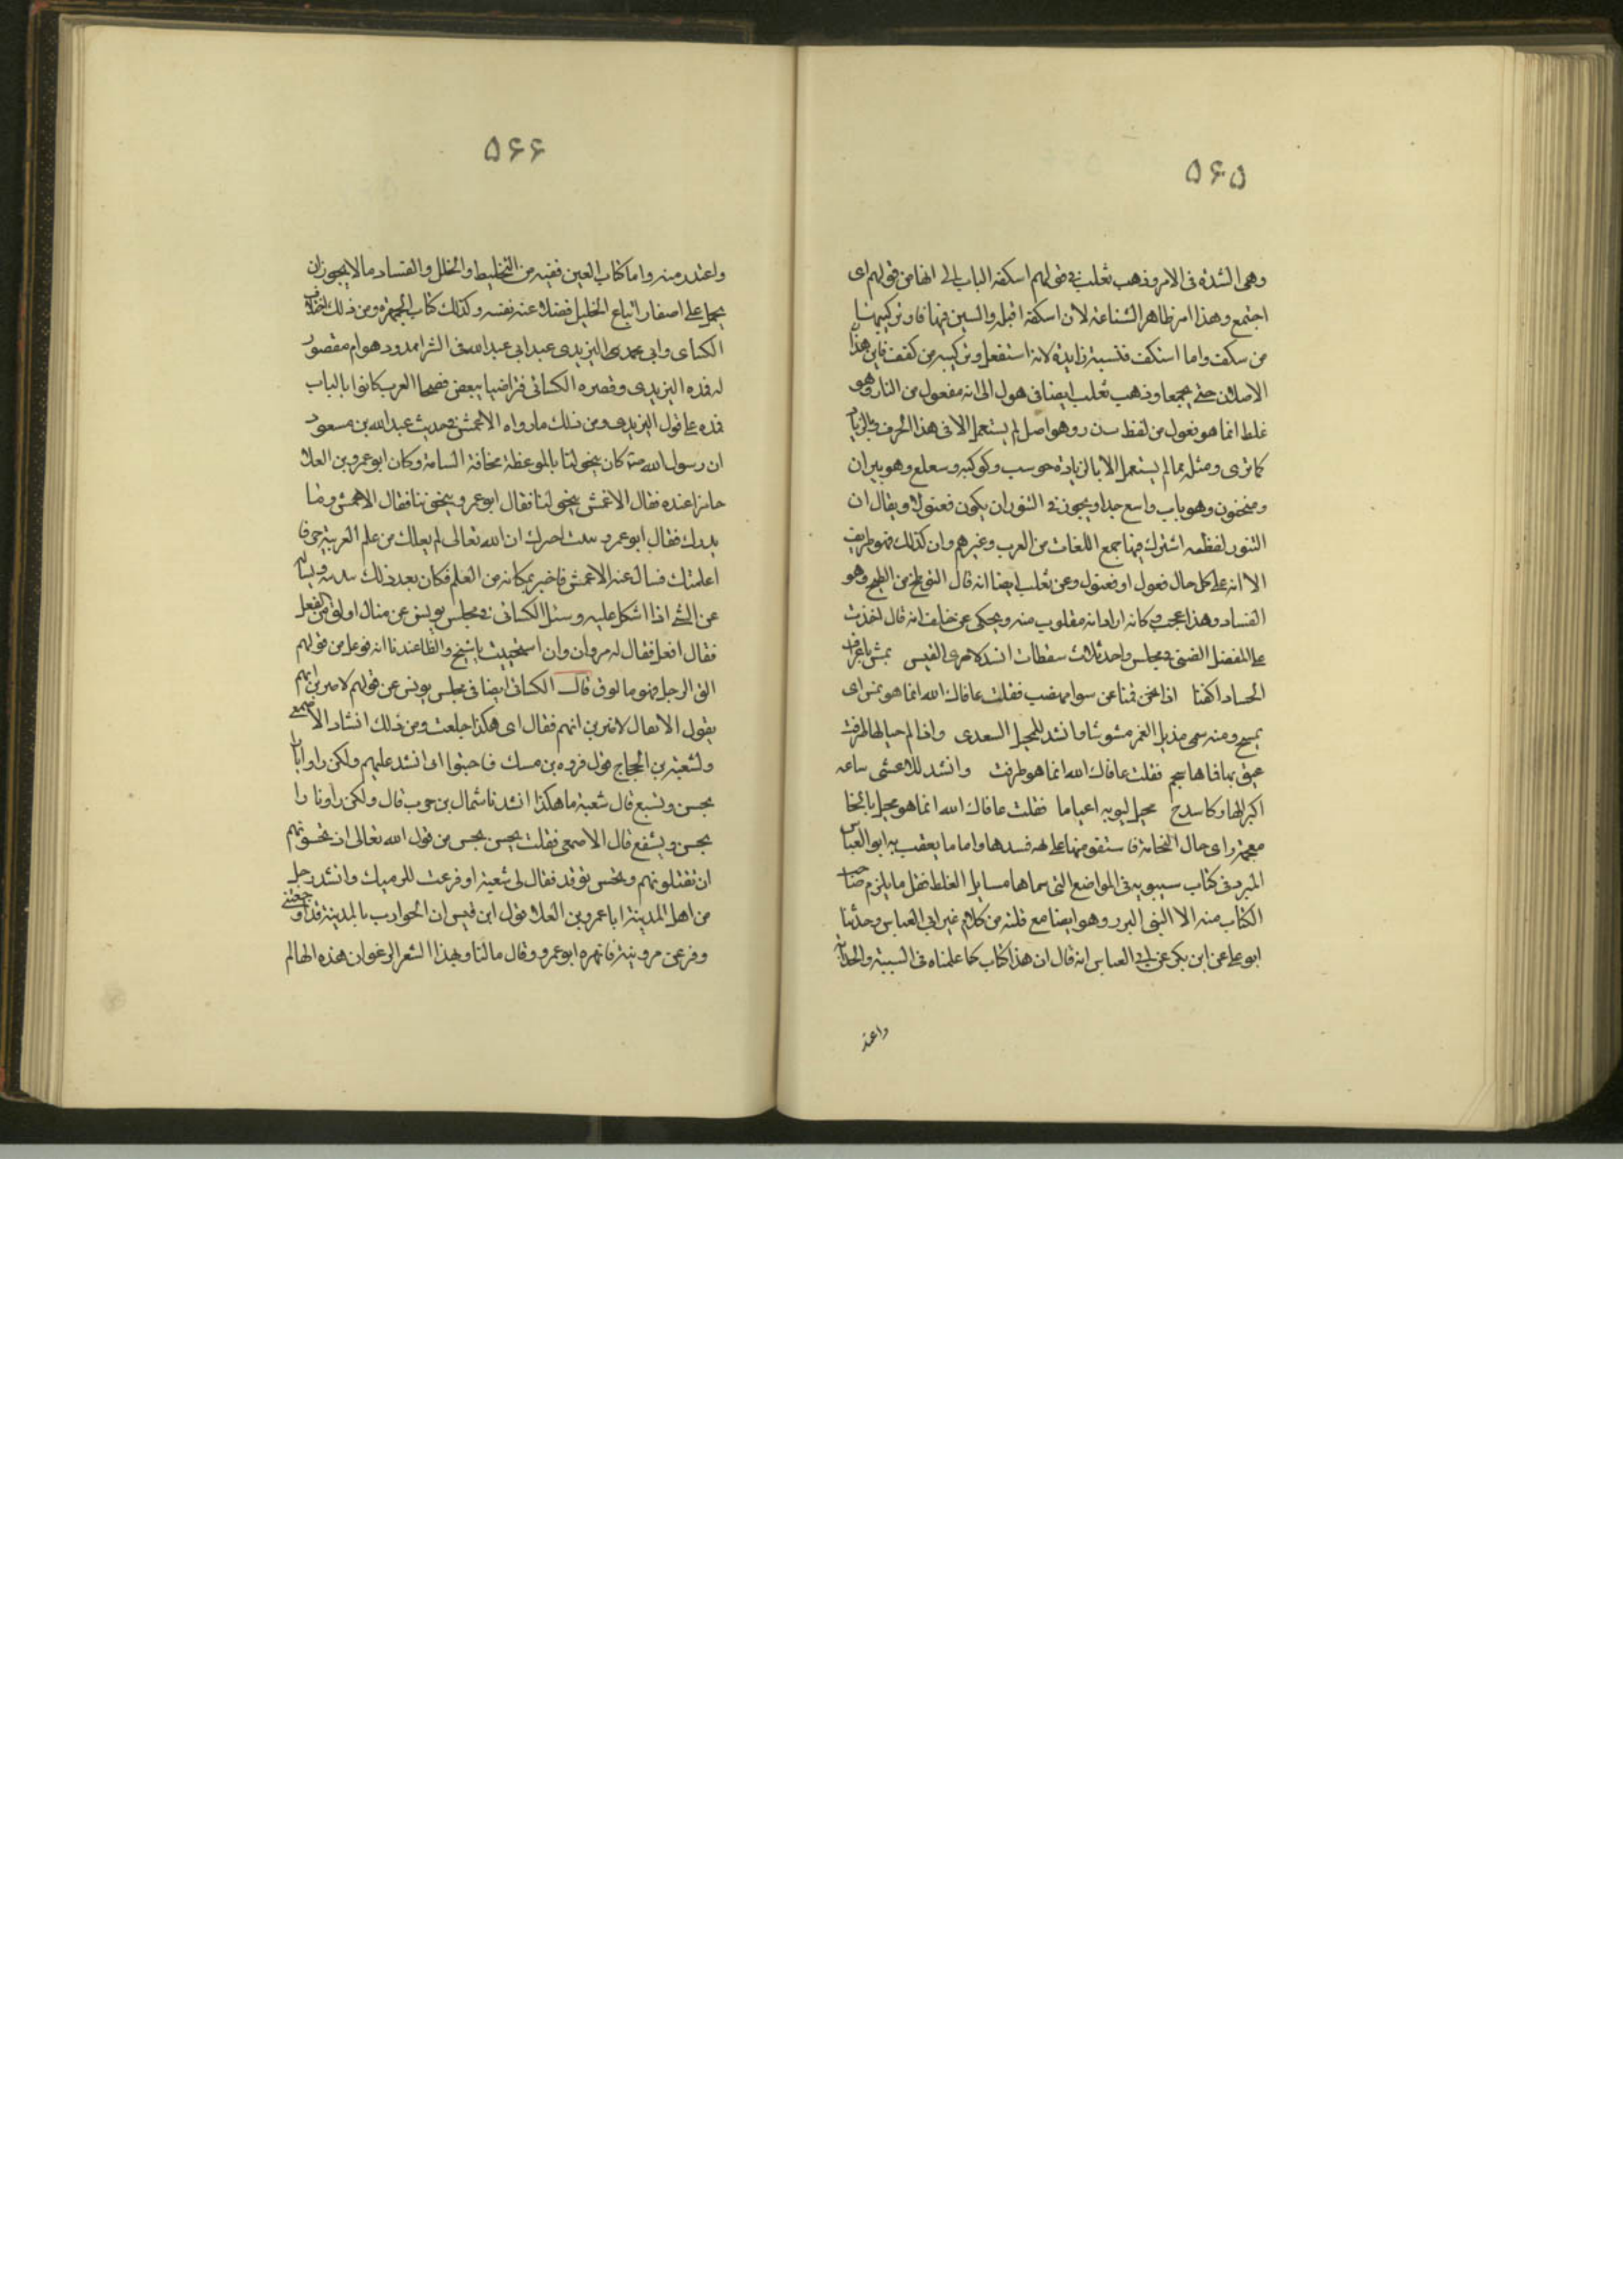 ۵۶۵
وهى الشدة فى الامر وذهب ثعلب فى قولهم اسكفة الباب الى انها من قولهم اى
اجتمع وهذا امر ظاهر الشناعة لان اسكفة افعلة والسين فيها فا وتركيبها
من سكف واما استكف فسينه زايدة لانه استفعل وتركيبه من كفف فاين هذا
الاصلان حتى يجمعا وذهب ثعلب ايضا فى هول الى انه مفعول من النار وهو
غلط انما هو فعول من لفظ ت ن ر وهو اصل لم يستعمل الا فى هذا الحرف وبالزيادة
كما ترى ومثله مما لم يستعمل الا بالزيادة حوسب وكوكب وسعلع وهو بيران
ومنجنون وهو باب واسع جدا ويجوز فى التنور ان يكون فعنولا ويقال ان
التنور لفظه اشترك فيها جميع اللغات من العرب وغيرهم وان كذلك فهو طريف
الا انه على كل حال فعول او فعنول وعن ثعلب ايضا انه قال من الطيخ وهو
الفساد وهذا عجب وكانه اراد انه مقلوب منه ويحكى عن خلف انه قال اخذت
على المفضل الضبى فى مجلس واحد ثلاث سقطات انشد لامرى القيس نمش باعراف
الجياد اكفنا اذا نحن قمنا عن سوا مهضب فقلت عافاك الله انما هو نمش اى
نمسح ومنه سمى منديل الغمر مشوشا وانشد للمخبل السعدى واذا الم خيالها طرفت
عينى فقلت عافاك الله انما هو طرفت وانشد للاعشى ساعة
اكبر النهار كما فقلت عافاك الله انما هو مخيل بالخا
معجمة راى خال فاستقو منها على بهمه فسدها واما ما يعقب به ابو العباس
المبرد فى كتاب سيبويه فى المواضع التى سماها مسايل الغلط فقل ما يلزم صاحب
الكتاب منه الا الشى النزر وهو ايضا مع قلته من كلام غير ابى العباس وحدثنا
ابو على عن ابن بكر عن ابى العباس انه قال ان هذا كتاب كنا علمناه فى الشبيبة والحداثة
واعتذ
۵۶۶
واعتذر منه واما كتاب العين ففيه من التخليط والخلل والفساد ما لا يجوز ان
يحمل على اصغار اتباع الخليل فضلا عنه نفسه وكذلك كتاب الجمهرة ومن ذلك اختلاف
الكساى وابى محمد اليزيدى عند ابى عبد الله فى الشرا ممدود هو ام مقصور
له فمده اليزيدى وقصره الكسائى فتراضيا ببعض فصحا العرب كانوا بالباب
فمده على قول اليزيدى ومن ذلك ما رواه الاعمش فى حديث عبد الله بن مسعود
ان رسول الله كان يتخولنا بالموعظة مخافة السامة وكان ابو عمرو بن العلا
حاضرا عنده فقال الاعمش يتخولنا فقال ابو عمرو يتخوننا فقال الاعمش وما
يدريك فقال ابو عمرو ان الله تعالى لم يعلمك من علم العربية حرفا
اعلمتك فسال عنه الاعمش فاخبر بمكانه من العلم فكان بعد ذلك ويساله
عن الشى اذا اشكل عليه وسئل الكسائى فى مجلس يونس عن مثال اولق من الفعل
فقال افعل فقال له مروان استحييت يا شيخ والظاهر عندنا انه فوعل من قولهم
الق الرجل فهو مالوق قال الكسائى ايضا فى مجلس يونس عن قولهم لاضربن ايهم
يقول لا يقال لاضربن ايهم فقال اى هكذا خلقت ومن ذلك انشاد الاصمعى
ولشعبة بن الحجاج قول فروة بن مسيك فما جبنوا انى اشد عليهم ولكن راوا نارا
تحس وتسفع قال شعبة ما هكذا انشدنا سماك بن حرب قال ولكن راوا نارا
تحش وتسفع قال الاصمعى فقلت تحس من قول الله تعالى اذ تحسونهم
اى تقتلونهم وتحش توقد فقال لى شعبة لو فرغت للزمتك وانشد رجل
من اهل المدينة ابا عمرو بن العلا قول ابن قيس ان الحوادث بالمدينة قد اوجعننى
وقرعن مروتيه فانتهره ابو عمرو وقال ما لنا ولهذا الشعر الرخو ان هذه الها لم